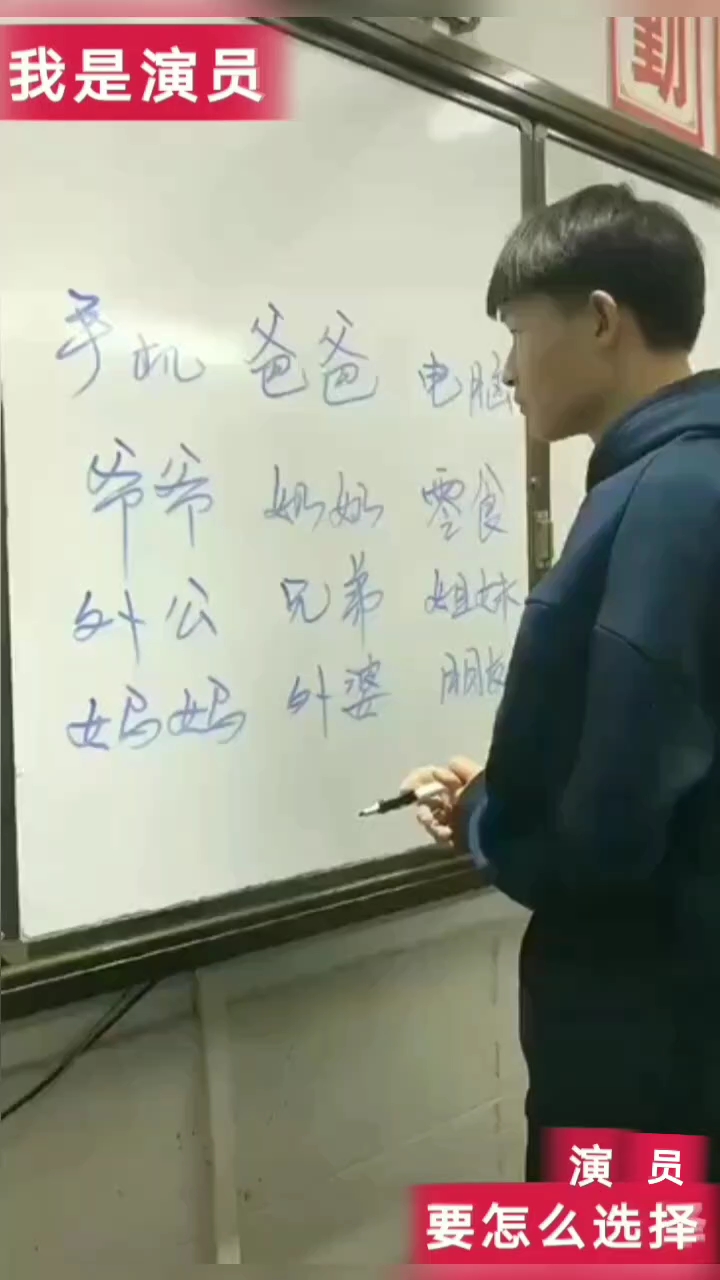 我是演员
勤
手机 爸爸 电脑
爷爷 奶奶 零食
外公 兄弟 姐妹
妈妈 外婆 朋友
演 员
要怎么选择